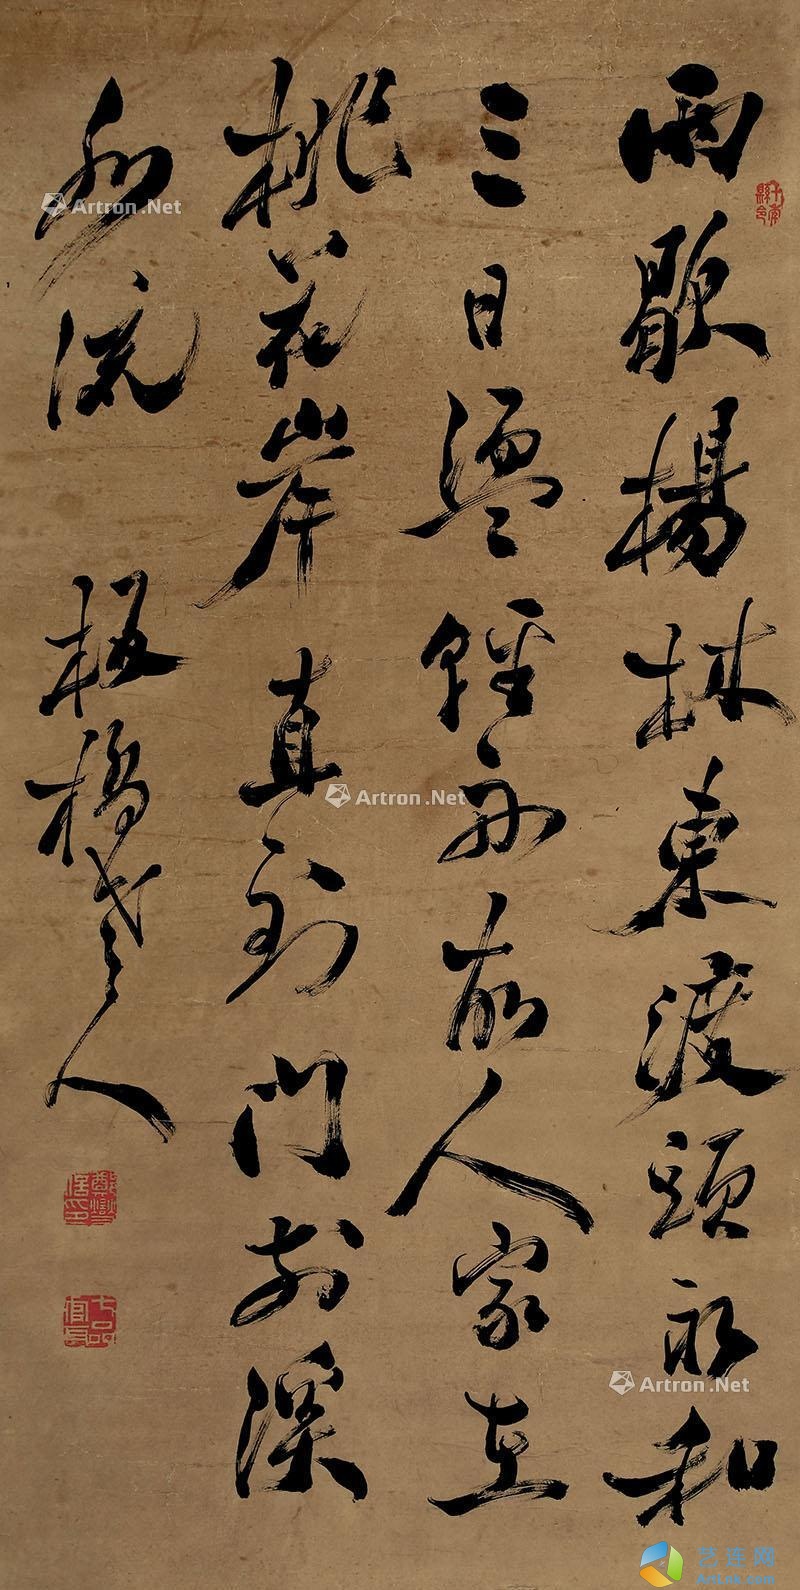 雨歇楊林東渡頭永和
三日盪輕舟故人家在
桃花岸直到門前溪
水流
板橋老人
七品官耳
Artron.Net
Artron.Net
Artron.Net
艺连网